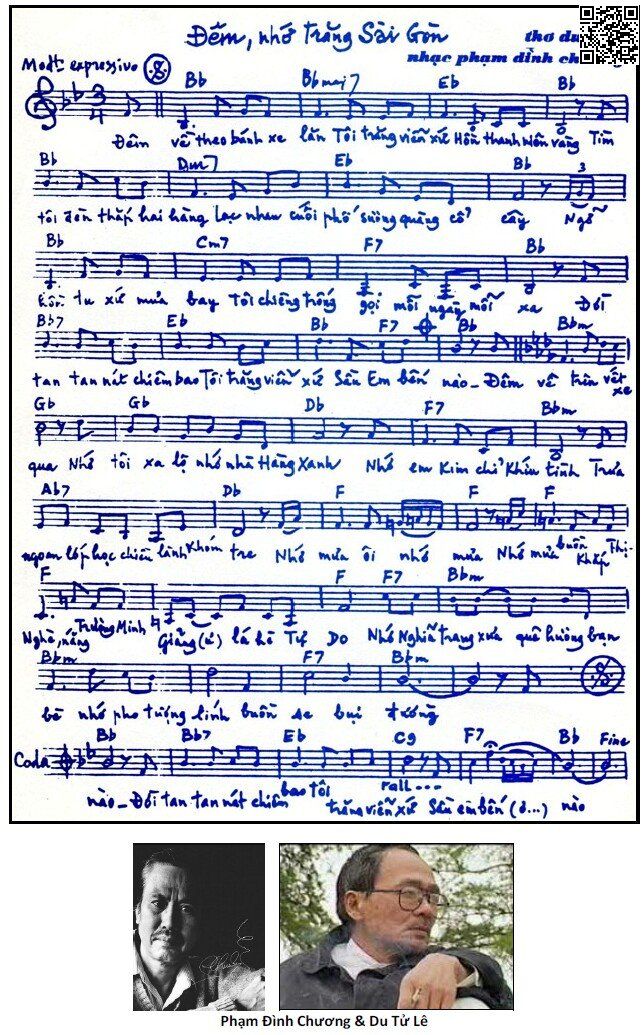 Đêm, nhớ trăng Sài Gòn
thơ du
nhạc phạm đình ch
Modto expressivo
Bb Bbmaj7 Eb Bb
3 4
Đêm về theo bánh xe lăn Tôi trăng viễn xứ Hồn thanh niên vàng Tìm
Bb Dm7 Eb Bb
3
tôi đèn thắp hai hàng Lạc nhau cuối phố sương quàng cổ cây Ngỡ
Bb Cm7 F7 Bb
hồn tu xứ mưa bay Tôi chiêng trống gọi mỗi ngày mỗi xa Đời
Bb7 Eb Bb F7 Bb Bbm
tan tan nát chiêm bao Tôi trăng viễn xứ Sầu Em bến nào - Đêm về trên vết xe
Gb Gb Db F7 Bbm
qua Nhớ tôi xa lộ nhớ nhà Hàng Xanh Nhớ em Kim chỉ khíu tình Trưa
Ab7 Db F F F
ngoan lớp học chiều lành Khóm tre Nhớ mưa ôi nhớ mưa Nhớ mưa buồn Khắp Thị-
F F F7 Bbm
Nghè, nắng Trường Minh Giảng (ư) lá hè Tự Do Nhớ Nghĩa trang xưa quê hương bạn
Bbm F7 Bbm
bè nhớ pho tượng lính buồn se bụi đường
Coda Bb Bb7 Eb C9 F7 Bb Fine
rall...
nào - Đời tan tan nát chiêm bao tôi trăng viễn xứ Sầu em bến (ơ...) nào
Phạm Đình Chương & Du Tử Lê